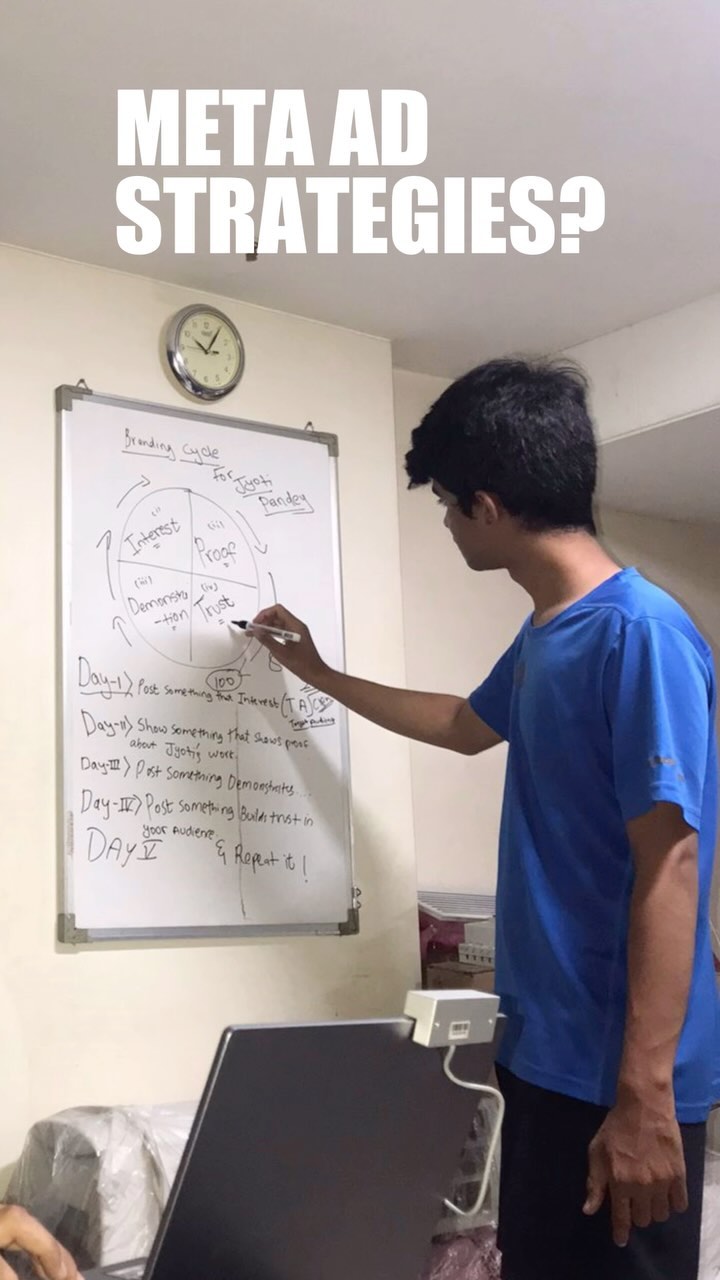 META AD
STRATEGIES?
Branding Cycle
for Jyoti
Pandey
(i)
Interest
(ii)
Proof
(iii)
Demonstra
-tion
(iv)
Trust
100
Day-I> Post something that Interest (TA)
Target Audience
Day-II> Show something that shows proof
about Jyoti's work.
Day-III> Post Something Demonstrates...
Day-IV> Post something Builds trust in
your Audience.
DAY V & Repeat it!